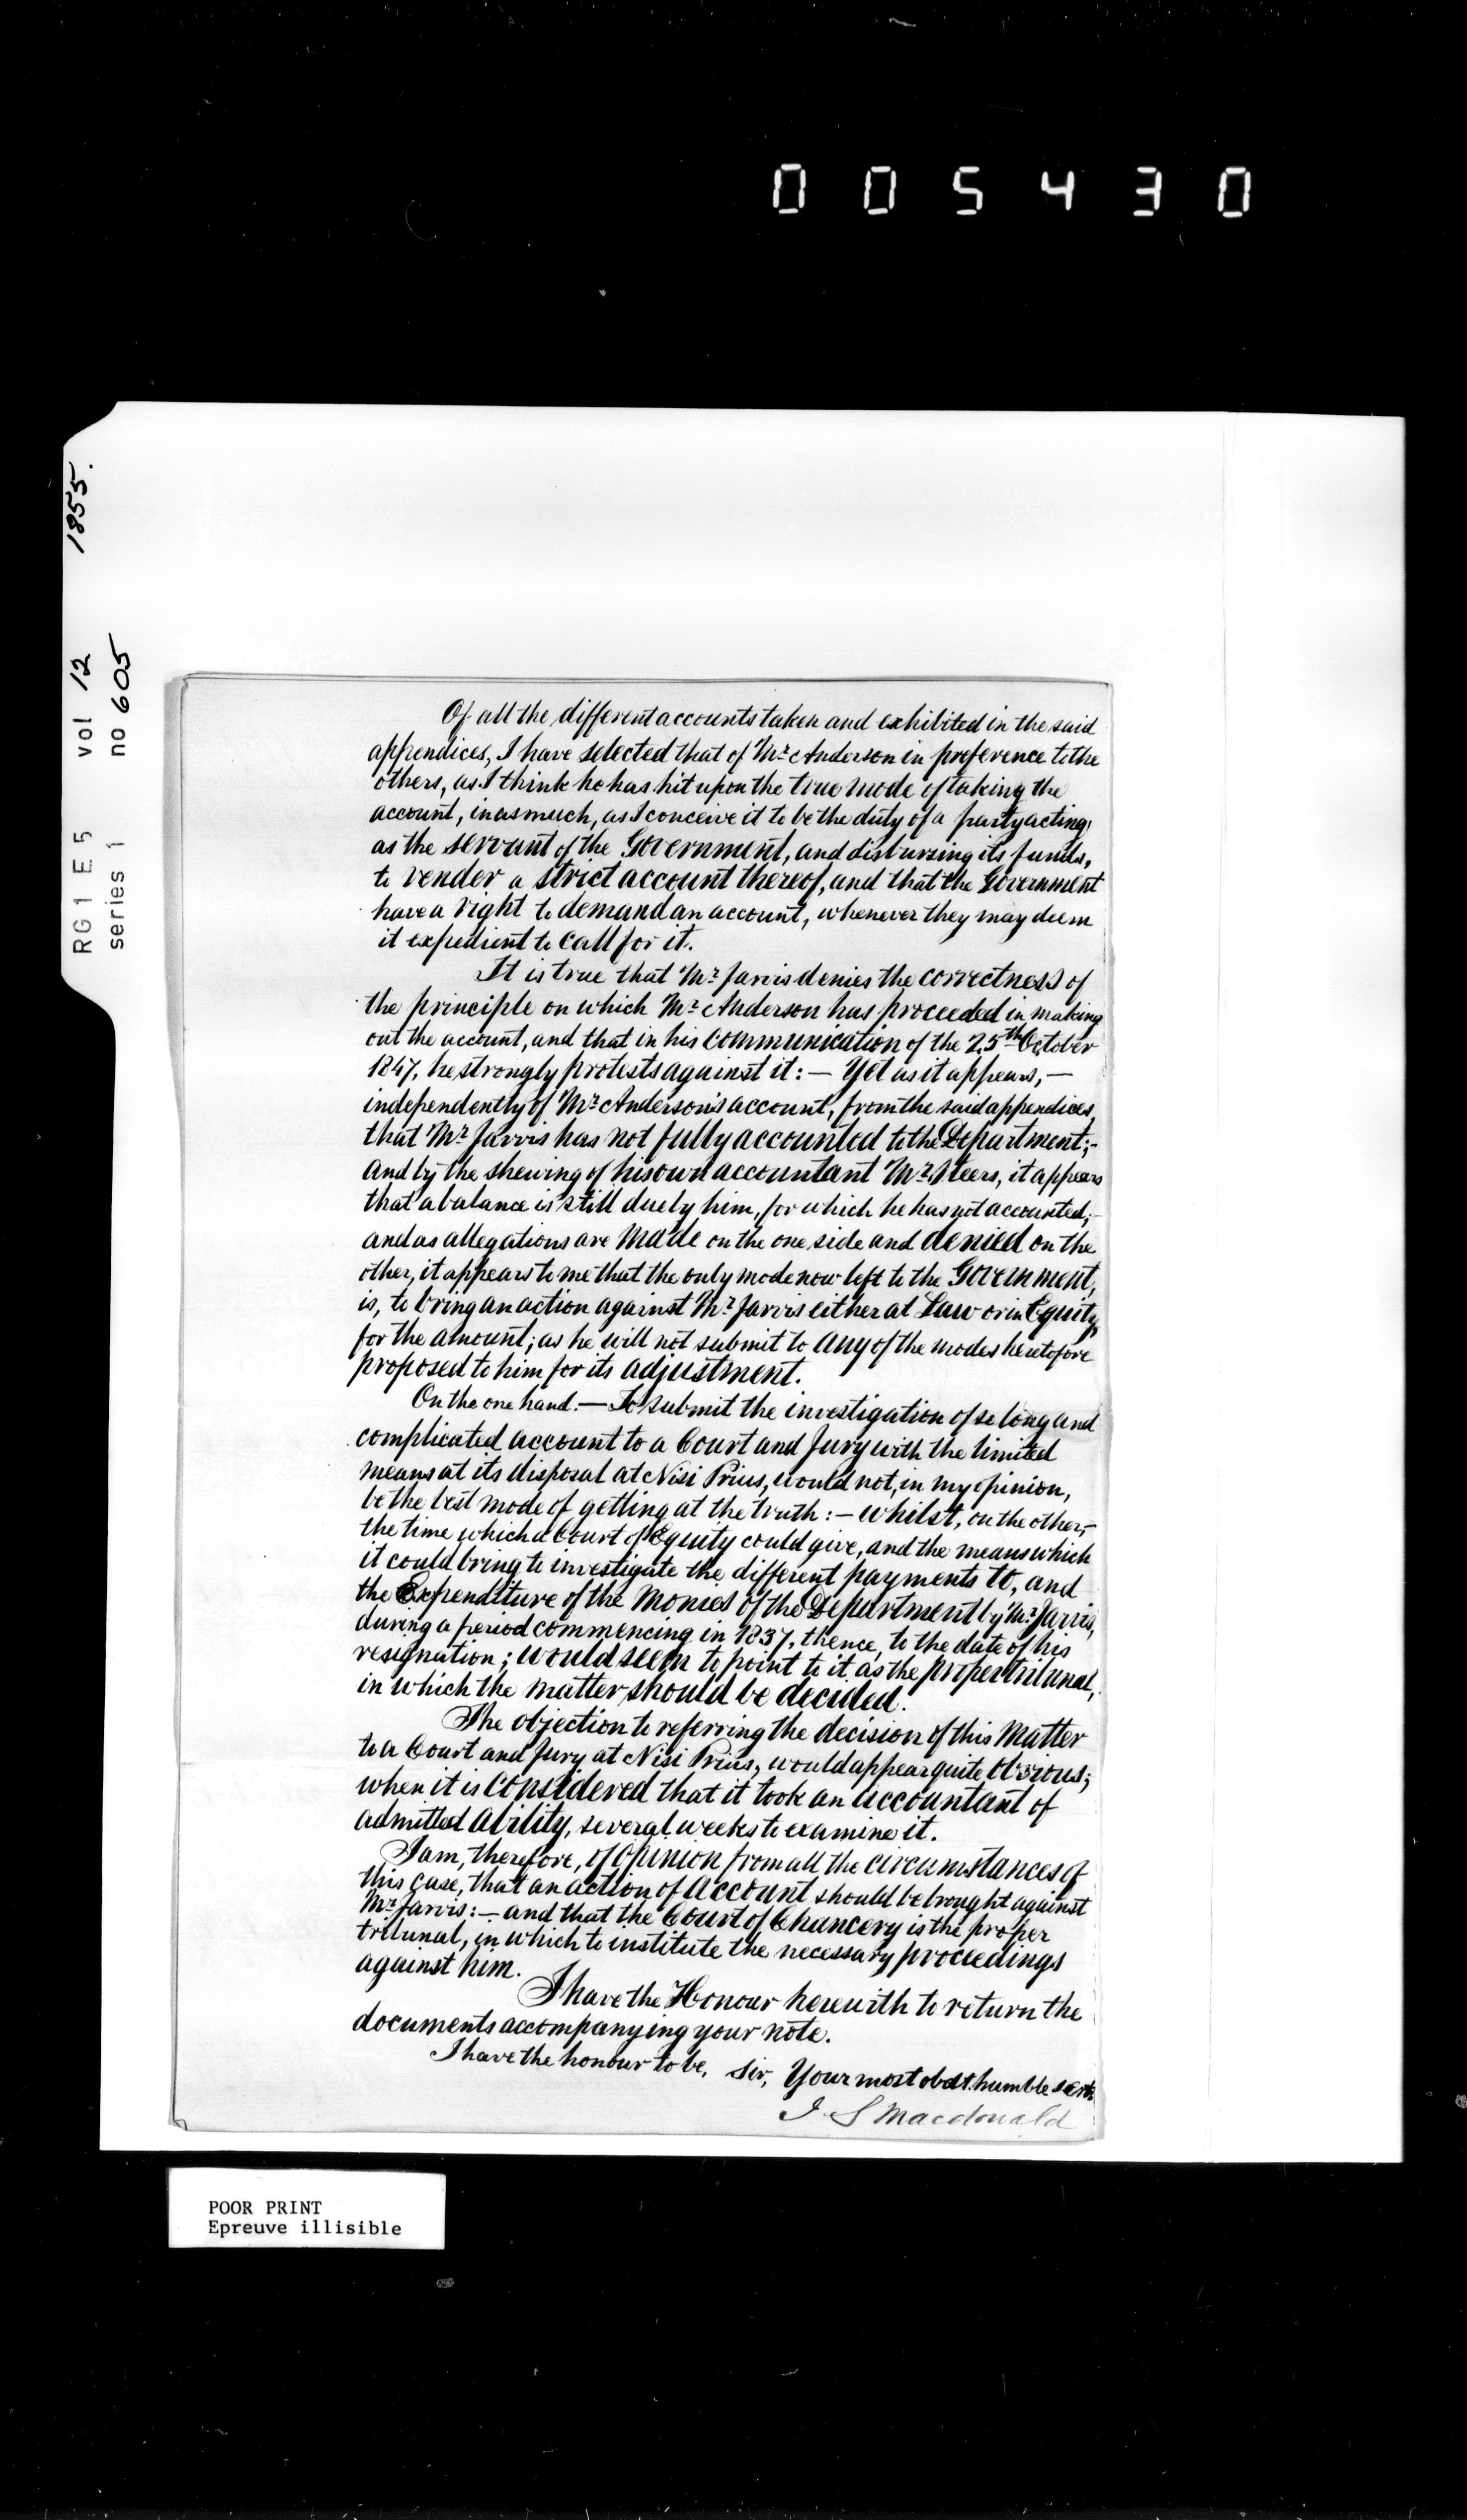 005430
1855.
RG 1 E 5 vol 12
series 1 no 605
Of all the different accounts taken and exhibited in the said
appendices, I have selected that of Mr. Anderson in preference to the
others, as I think he has hit upon the true mode of taking the
account, inasmuch, as I conceive it to be the duty of a party acting
as the servant of the Government, and disbursing its funds,
to render a strict account thereof, and that the Government
have a right to demand an account, whenever they may deem
it expedient to call for it.
It is true that Mr. Jarvis denies the correctness of
the principle on which Mr. Anderson has proceeded in making
out the account, and that in his communication of the 25th October
1847, he strongly protests against it:— Yet as it appears,—
independently of Mr. Anderson's account, from the said appendices,
that Mr. Jarvis has not fully accounted to the Department;-
and by the shewing of his own accountant Mr. Steers, it appears
that a balance is still due by him, for which he has not accounted;-
and as allegations are made on the one side and denied on the
other, it appears to me that the only mode now left to the Government,
is, to bring an action against Mr. Jarvis either at Law or in Equity,
for the amount; as he will not submit to any of the modes heretofore
proposed to him for its adjustment.
On the one hand.— To submit the investigation of so long and
complicated account to a Court and Jury with the limited
means at its disposal at Nisi Prius, would not, in my opinion,
be the best mode of getting at the truth:— whilst, on the other,-
the time which a Court of Equity could give, and the means which
it could bring to investigate the different payments to, and
the Expenditure of the Monies of the Department by Mr. Jarvis,
during a period commencing in 1837, thence, to the date of his
resignation; would seem to point to it as the proper tribunal,
in which the matter should be decided.
The objection to referring the decision of this Matter
to a Court and Jury at Nisi Prius, would appear quite obvious;
when it is considered that it took an accountant of
admitted ability, several weeks to examine it.
I am, therefore, of opinion from all the circumstances of
this case, that an action of Account should be brought against
Mr. Jarvis:— and that the Court of Chancery is the proper
tribunal, in which to institute the necessary proceedings
against him.
I have the Honour herewith to return the
documents accompanying your note.
I have the honour to be, Sir, Your most obdt. humble servt.
J S Macdonald
POOR PRINT
Epreuve illisible